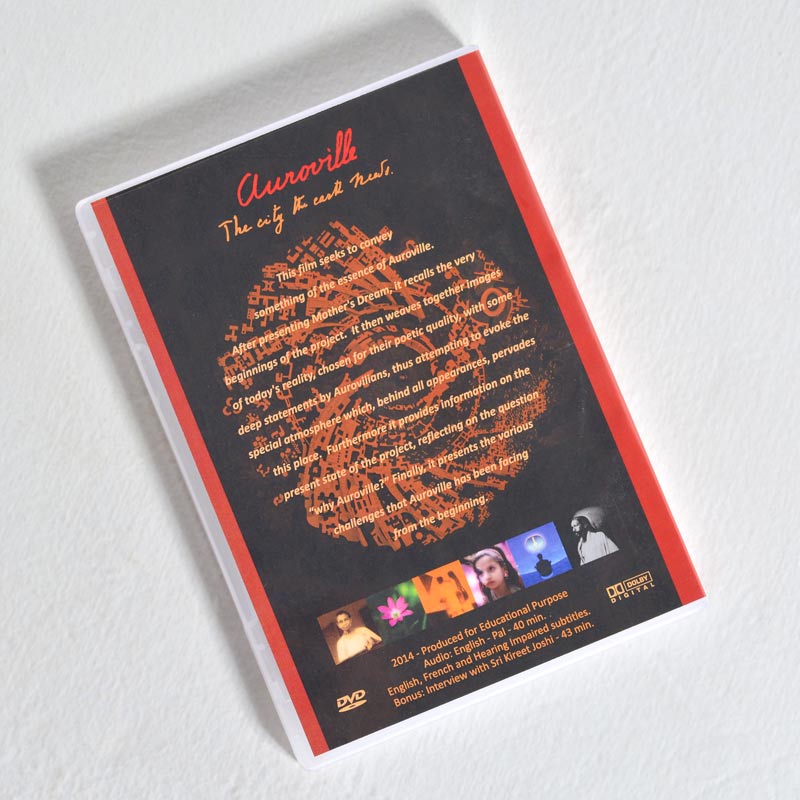 Auroville
The city the earth needs.
This film seeks to convey
something of the essence of Auroville.
After presenting Mother's Dream, it recalls the very
beginnings of the project. It then weaves together images
of today's reality, chosen for their poetic quality, with some
deep statements by Aurovilians, thus attempting to evoke the
special atmosphere which, behind all appearances, pervades
this place. Furthermore it provides information on the
present state of the project, reflecting on the question
"why Auroville?" Finally, it presents the various
challenges that Auroville has been facing
from the beginning.
DOLBY
DIGITAL
2014 - Produced for Educational Purpose
Audio: English - Pal - 40 min.
English, French and Hearing Impaired subtitles.
Bonus: Interview with Sri Kireet Joshi - 43 min.
DVD